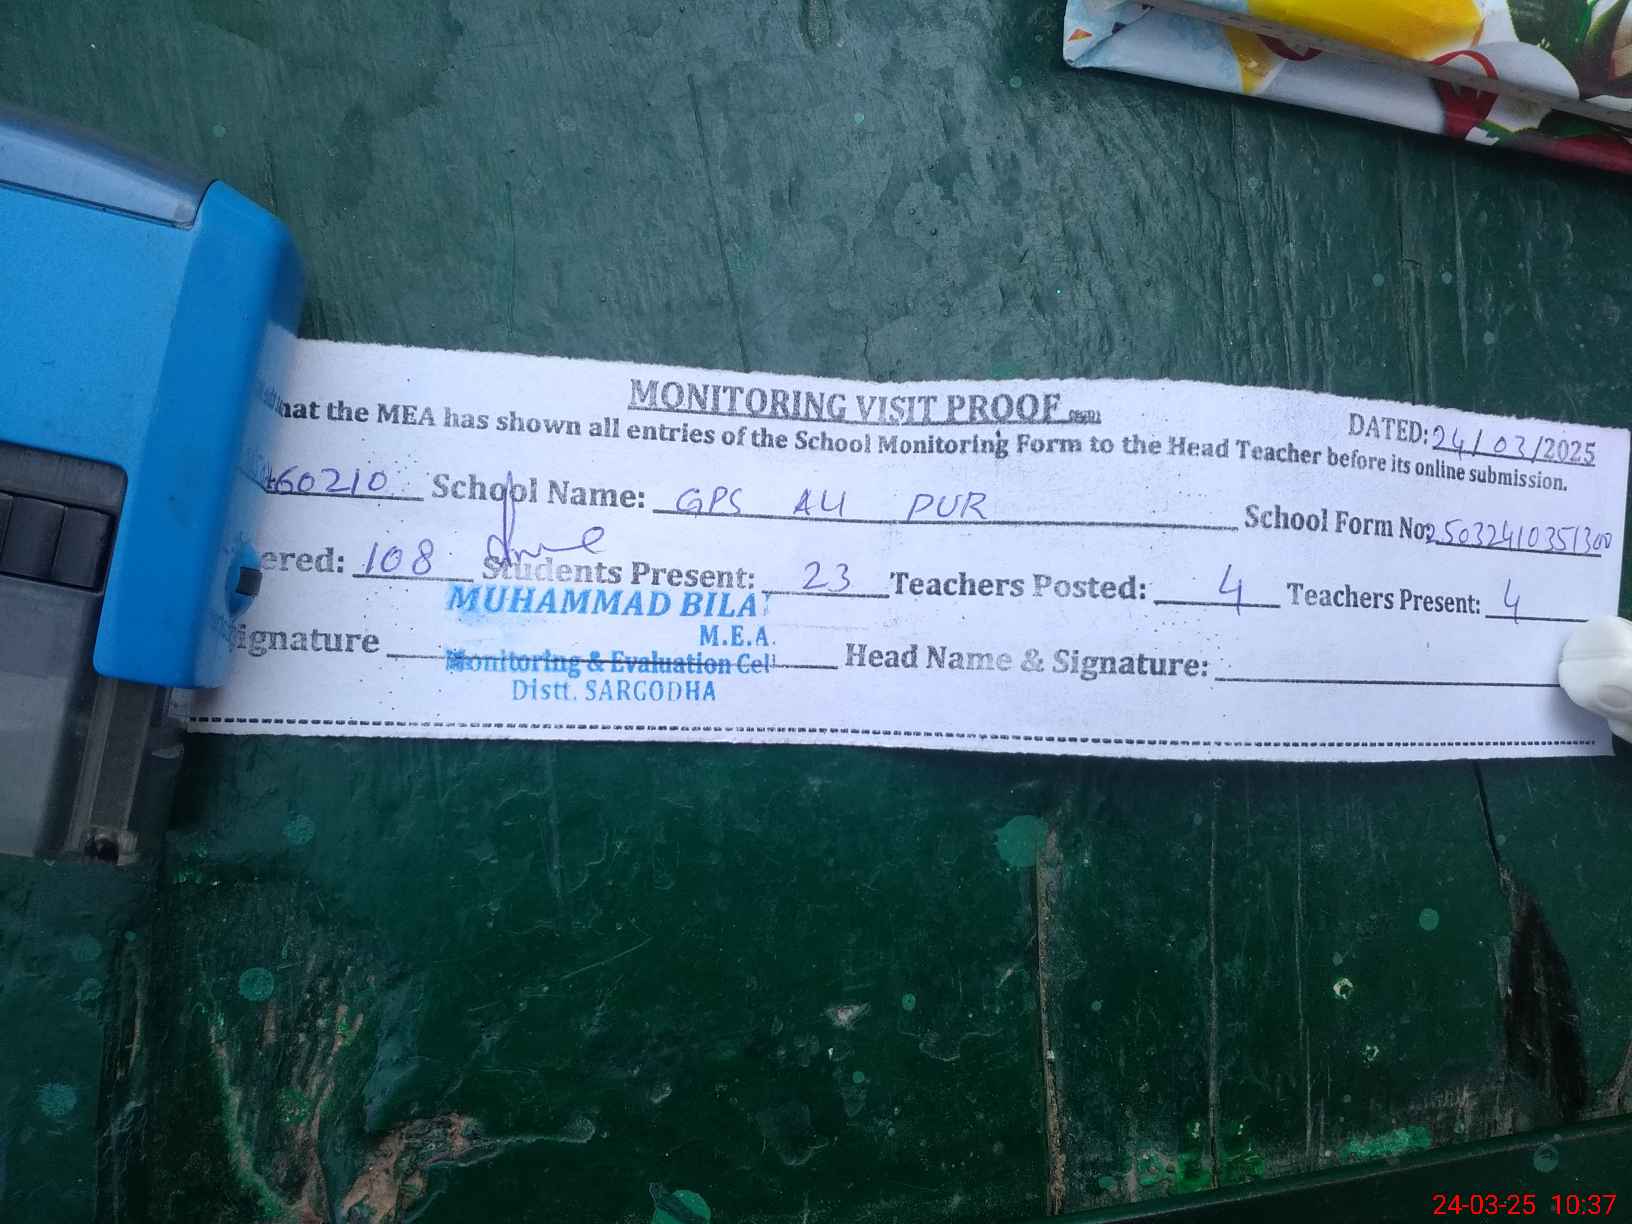 MONITORING VISIT PROOF
DATED: 24/03/2025
that the MEA has shown all entries of the School Monitoring Form to the Head Teacher before its online submission.
60210 School Name: GPS ALI PUR School Form No: 25032410351300
ered: 108 Students Present: 23 Teachers Posted: 4 Teachers Present: 4
ignature Head Name & Signature:
MUHAMMAD BILAL
M.E.A.
Monitoring & Evaluation Cell
Distt. SARGODHA
24-03-25 10:37